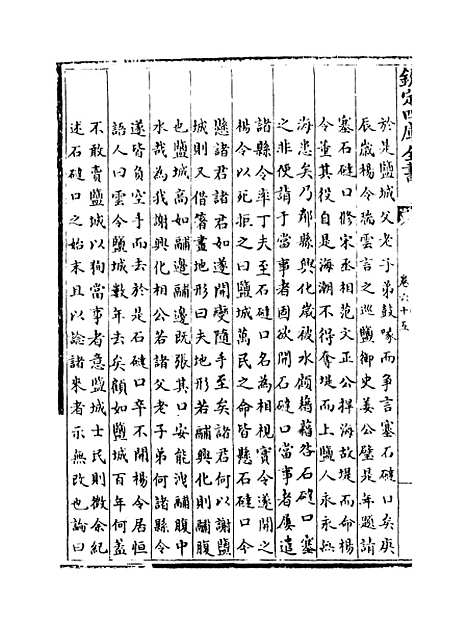 欽定四庫全書
卷六十五
於是鹽城父老子弟鼓喙而争言塞石䃮口矣庚
辰歳楊令瑞雲言之巡鹽御史姜公璧是年題請
塞石䃮口修宋丞相范文正公捍海故堤而命楊
令董其役自是海潮不得奪堤而上鹽人永永無
海患矣乃鄰縣興化歳被水頗藉藉咎石䃮口塞
之非便請于當事者固欲開石䃮口當事者屢遣
諸縣令率丁夫至石䃮口名為相視實令遂開之
楊令以死拒之曰鹽城萬民之命皆懸石䃮口今
懸諸君諸君如遂開變隨手至矣諸君何以謝鹽
城則又借箸畫地形曰夫地形若䩱興化則䩱腹
也鹽城高如䩱邊䩱邊既張其口安能洩䩱腹中
水哉為我謝興化相公若諸父老子弟何諸縣令
遂皆負空手而去於是石䃮口卒不開楊令居恒
語人曰雲今鹽城數年去矣顧如鹽城百年何葢
不敢賣鹽城以狥當事者意鹽城士民則徴余紀
述石䃮口之始末且以諗諸來者示無改也論曰